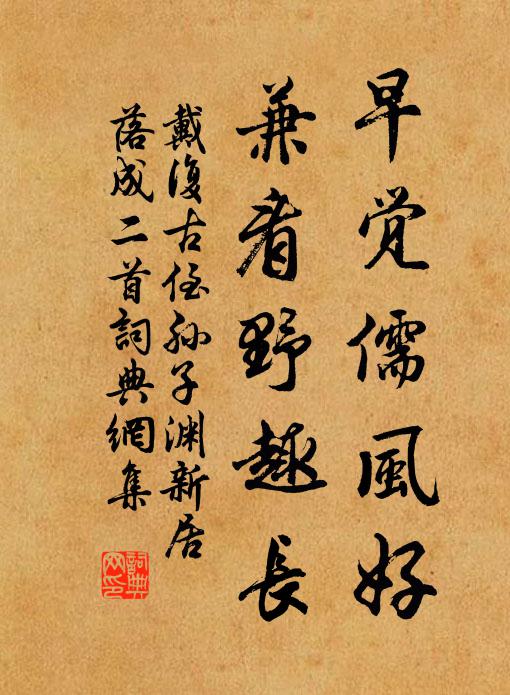 早觉儒風好
兼看野趣長
戴復古侄孙子渊新居
落成二首詞典網集
詞典
网印